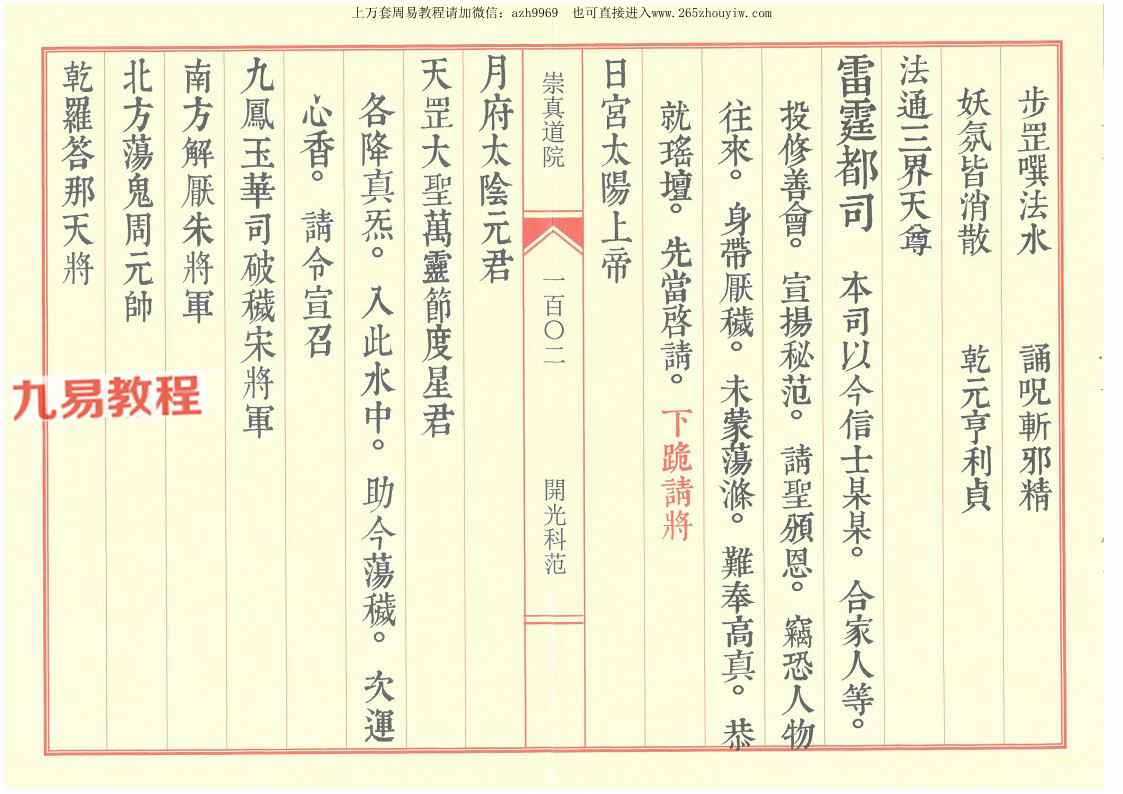 上万套周易教程请加微信：azh9969　也可直接进入www.265zhouyiw.com
步罡噀法水　誦呪斬邪精
妖氛皆消散　乾元亨利貞
法通三界天尊
雷霆都司　本司以今信士某某。合家人等。
投修善會。宣揚秘范。請聖頒恩。竊恐人物
往來。身帶厭穢。未蒙蕩滌。難奉高真。恭
就瑤壇。先當啓請。下跪請將
日宮太陽上帝
崇真道院　一百〇二　開光科范
月府太陰元君
天罡大聖萬靈節度星君
各降真炁。入此水中。助今蕩穢。次運
心香。請令宣召
九鳳玉華司破穢宋將軍
南方解厭朱將軍
北方蕩鬼周元帥
乾羅答那天將
九易教程